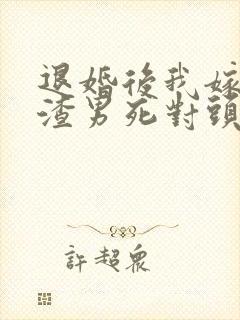 退婚後我嫁
渣男死對頭
許超眾